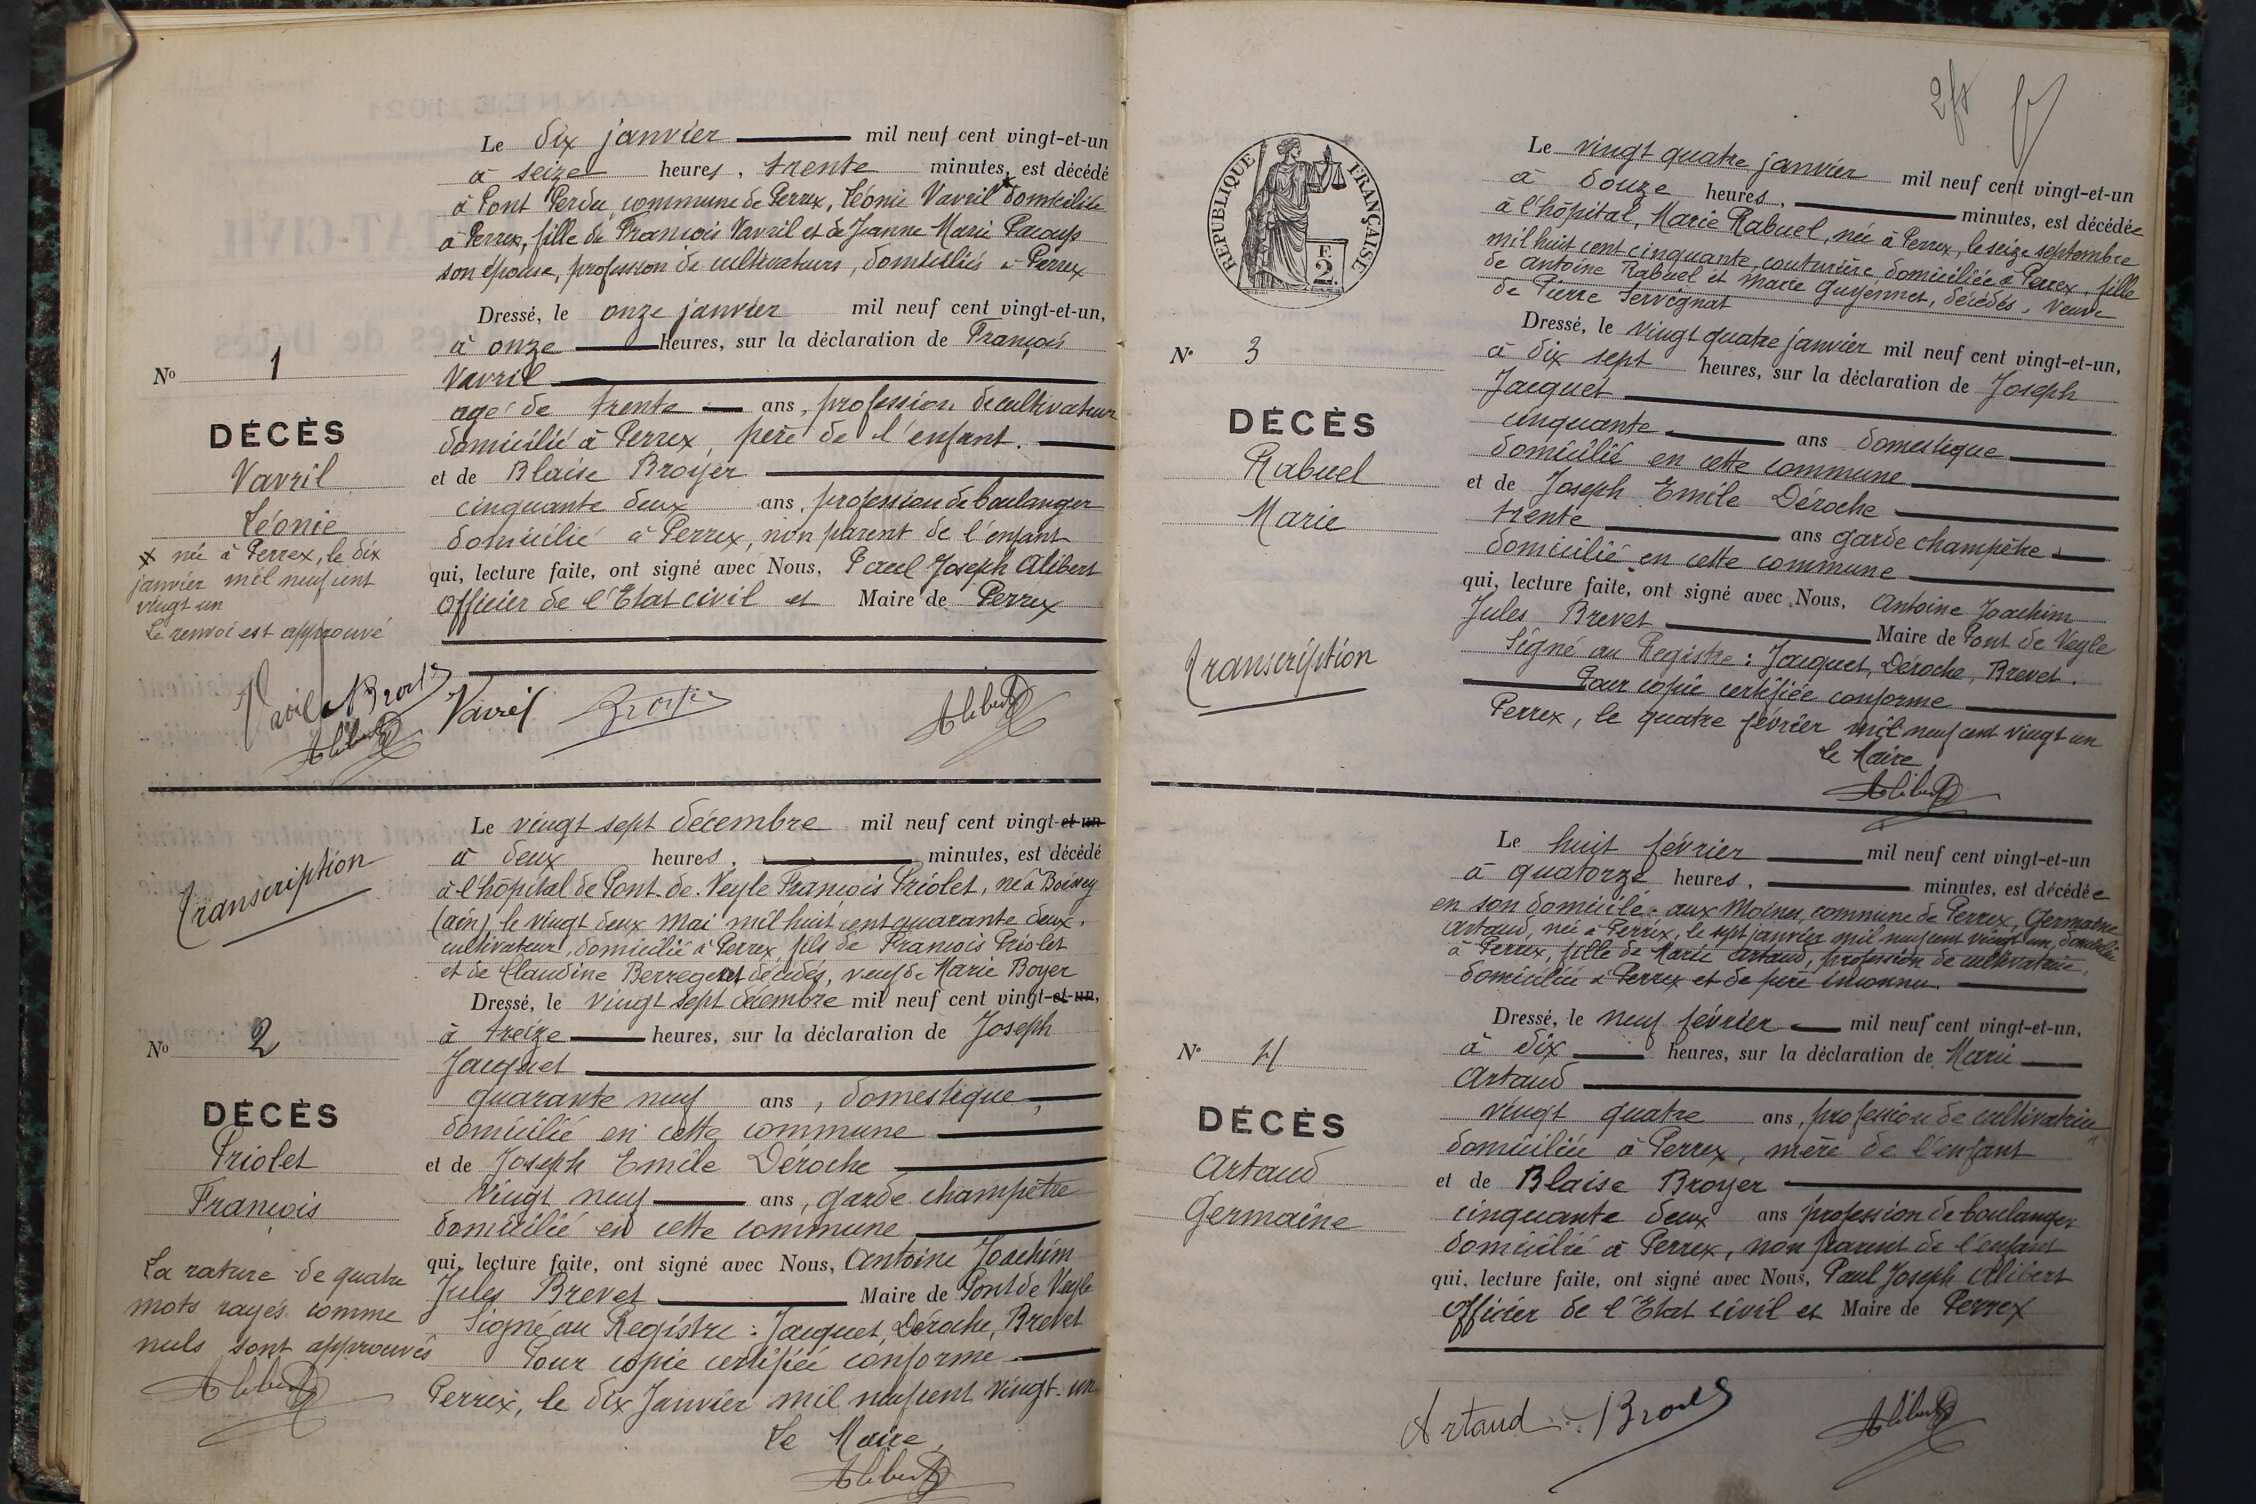 Le dix janvier mil neuf cent vingt-et-un
à seize heures, trente minutes, est décédé
à Pont Perdu, commune de Perrex, Léonie Vavril domiciliée
à Perrex, fille de François Vavril et de Jeanne Marie Pacaup
son épouse, profession de cultivateurs, domiciliés à Perrex
Dressé, le onze janvier mil neuf cent vingt-et-un,
à onze heures, sur la déclaration de François
Vavril
agé de trente ans, profession de cultivateur
domicilié à Perrex, père de l'enfant.
et de Blaise Broyer
cinquante deux ans, profession de boulanger
domicilié à Perrex, non parent de l'enfant
qui, lecture faite, ont signé avec Nous, Paul Joseph Alibert
Officier de l'Etat civil et Maire de Perrex
No 1
DÉCÈS
Vavril
Léonie
née à Perrex, le dix
janvier mil neuf cent
vingt un
Le renvoi est approuvé
Vavril Broyer
Alibert
Vavril Broyer Alibert
Transcription
Le vingt sept décembre mil neuf cent vingt-et-un
à deux heures, minutes, est décédé
à l'hôpital de Pont de Veyle François Priolet, né à Boissey
(ain), le vingt deux mai mil huit cent quarante deux,
cultivateur, domicilié à Perrex, fils de François Priolet
et de Claudine décédés, veuf de Marie Boyer
Dressé, le vingt sept décembre mil neuf cent vingt-et-un,
à treize heures, sur la déclaration de Joseph
Jacquet
quarante neuf ans, domestique,
domicilié en cette commune
et de Joseph Emile Déroche
vingt neuf ans, garde champêtre
domicilié en cette commune
qui, lecture faite, ont signé avec Nous, Antoine Joachim
Jules Brevet Maire de Pont de Veyle
Signé au Registre : Jacquet, Déroche, Brevet
Pour copie certifiée conforme
Perrex, le dix Janvier mil neuf cent vingt-un
Le Maire,
Alibert
No 2
DÉCÈS
Priolet
François
La rature de quatre
mots rayés comme
nuls sont approuvés
Alibert
2 fs
RÉPUBLIQUE FRANÇAISE
E
2.
Le vingt quatre janvier mil neuf cent vingt-et-un
à douze heures, minutes, est décédée
à l'hôpital, Marie Rabuel, née à Perrex, le seize septembre
mil huit cent cinquante, couturière domiciliée à Perrex, fille
de Antoine Rabuel et Marie Guyennet, décédés, veuve
de Pierre Servignat
Dressé, le vingt quatre janvier mil neuf cent vingt-et-un,
à dix sept heures, sur la déclaration de Joseph
Jacquet
cinquante ans domestique
domicilié en cette commune
et de Joseph Emile Déroche
trente ans garde champêtre
domicilié en cette commune
qui, lecture faite, ont signé avec Nous, Antoine Joachim
Jules Brevet Maire de Pont de Veyle
Signé au Registre : Jacquet, Déroche, Brevet.
Pour copie certifiée conforme
Perrex, le quatre février mil neuf cent vingt un
Le Maire
Alibert
No 3
DÉCÈS
Rabuel
Marie
Transcription
Le huit février mil neuf cent vingt-et-un
à quatorze heures, minutes, est décédée
en son domicile aux Moines, commune de Perrex, Germaine
Artaud, née à Perrex, le sept janvier mil neuf cent vingt un, domiciliée
à Perrex, fille de Marie Artaud, profession de cultivatrice,
domiciliée à Perrex et de père inconnu.
Dressé, le neuf février mil neuf cent vingt-et-un,
à dix heures, sur la déclaration de Marie
Artaud
vingt quatre ans, profession de cultivatrice
domiciliée à Perrex, mère de l'enfant
et de Blaise Broyer
cinquante deux ans profession de boulanger
domicilié à Perrex, non parent de l'enfant
qui, lecture faite, ont signé avec Nous, Paul Joseph Alibert
Officier de l'Etat civil et Maire de Perrex
No 4
DÉCÈS
Artaud
Germaine
Artaud Broyer Alibert